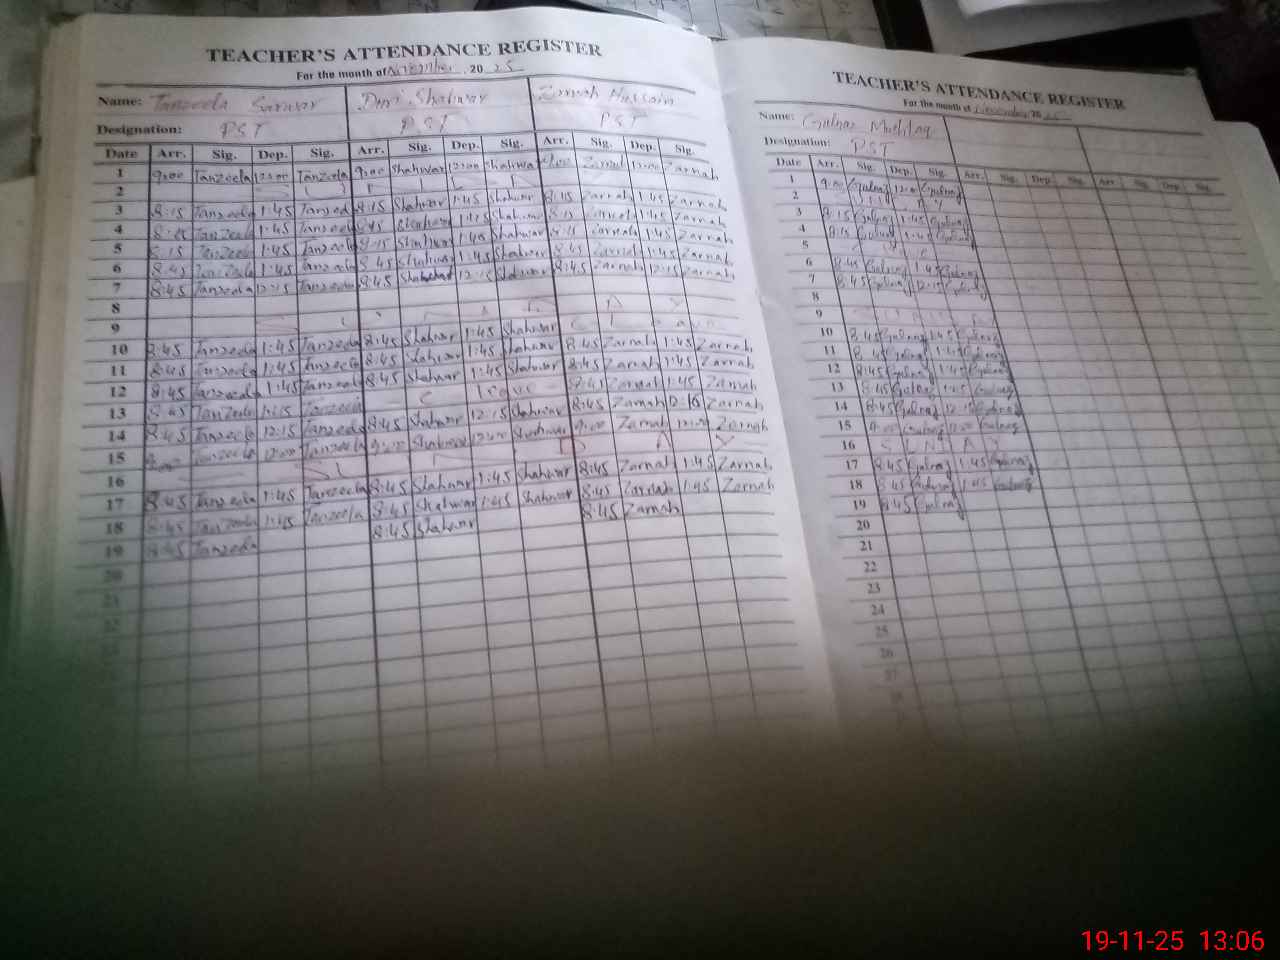 TEACHER'S ATTENDANCE REGISTER
For the month of November, 20 25
Name: Tanzeela Sarwar Durri Shahwar Zarnah Hussain
Designation: PST PST PST
Date Arr. Sig. Dep. Sig. Arr. Sig. Dep. Sig. Arr. Sig. Dep. Sig.
1 9:00 Tanzeela 12:00 Tanzeela 9:00 Shahwar 12:00 Shahwar 9:00 Zarnah 12:00 Zarnah
2
3 8:15 Tanzeela 1:45 Tanzeela 8:15 Shahwar 1:45 Shahwar 8:15 Zarnah 1:45 Zarnah
4 8:15 Tanzeela 1:45 Tanzeela 8:15 Shahwar 1:45 Shahwar 8:15 Zarnah 1:45 Zarnah
5 8:15 Tanzeela 1:45 Tanzeela 8:15 Shahwar 1:45 Shahwar 8:15 Zarnah 1:45 Zarnah
6 8:45 Tanzeela 1:45 Tanzeela 8:45 Shahwar 1:45 Shahwar 8:45 Zarnah 1:45 Zarnah
7 8:45 Tanzeela 12:15 Tanzeela 8:45 Shahwar 12:15 Shahwar 8:45 Zarnah 12:15 Zarnah
8
9
10 8:45 Tanzeela 1:45 Tanzeela 8:45 Shahwar 1:45 Shahwar
11 8:45 Tanzeela 1:45 Tanzeela 8:45 Shahwar 1:45 Shahwar 8:45 Zarnah 1:45 Zarnah
12 8:45 Tanzeela 1:45 Tanzeela 8:45 Shahwar 1:45 Shahwar 8:45 Zarnah 1:45 Zarnah
13 8:45 Tanzeela 1:45 Tanzeela Leave 8:45 Zarnah 1:45 Zarnah
14 8:45 Tanzeela 12:15 Tanzeela 8:45 Shahwar 12:15 Shahwar 8:45 Zarnah 12:16 Zarnah
15 9:00 Tanzeela 12:00 Tanzeela 9:00 Shahwar 12:00 Shahwar 9:00 Zarnah 12:00 Zarnah
16 S D A Y
17 8:45 Tanzeela 1:45 Tanzeela 8:45 Shahwar 1:45 Shahwar 8:45 Zarnah 1:45 Zarnah
18 8:45 Tanzeela 1:45 Tanzeela 8:45 Shahwar 1:45 Shahwar 8:45 Zarnah 1:45 Zarnah
19 8:45 Tanzeela 8:45 Shahwar 8:45 Zarnah
20
21
22
TEACHER'S ATTENDANCE REGISTER
For the month of November 20 25
Name: Gulnaz Mushtaq
Designation: PST
Date Arr. Sig. Dep. Sig. Arr. Sig. Dep. Sig. Arr. Sig. Dep. Sig.
1 9:00 Gulnaz 12:00 Gulnaz
2
3 8:15 Gulnaz 1:45 Gulnaz
4 8:15 Gulnaz 1:45 Gulnaz
5
6 8:45 Gulnaz 1:45 Gulnaz
7 8:45 Gulnaz 12:15 Gulnaz
8
9
10 8:45 Gulnaz 1:45 Gulnaz
11 8:45 Gulnaz 1:45 Gulnaz
12 8:45 Gulnaz 1:45 Gulnaz
13 8:45 Gulnaz 1:45 Gulnaz
14 8:45 Gulnaz 12:15 Gulnaz
15 9:00 Gulnaz 12:00 Gulnaz
16 S U N D A Y
17 8:45 Gulnaz 1:45 Gulnaz
18 8:45 Gulnaz 1:45 Gulnaz
19 8:45 Gulnaz
20
21
22
23
24
25
26
27
19-11-25 13:06